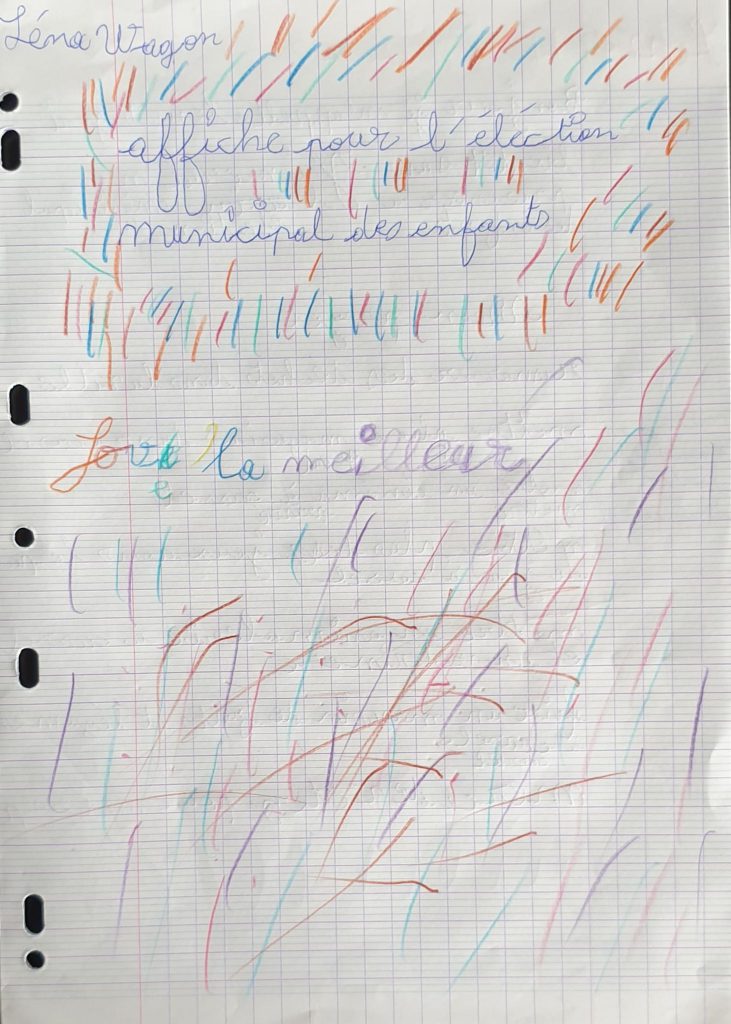 Léna Wagon
affiche pour l'éléction
municipal des enfants
la meilleur